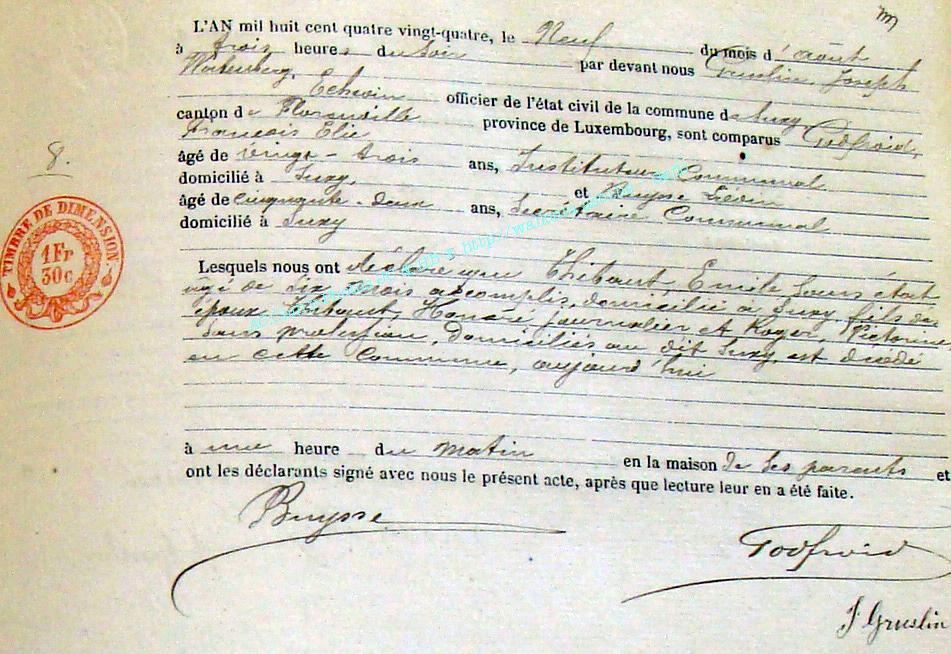 m
L'AN mil huit cent quatre vingt-quatre, le Neuf du mois d'août
à trois heures du Soir par devant nous Gruslin Joseph
Echevin officier de l'état civil de la commune de Suxy
canton de Florenville province de Luxembourg, sont comparus Godfroid,
François Elie
âgé de vingt-trois ans, Instituteur Communal
domicilié à Suxy, et Buysse
âgé de cinquante-deux ans, Secrétaire Communal
domicilié à Suxy
8.
TIMBRE DE DIMENSION
1 Fr
30c
Lesquels nous ont déclaré que Thibaut, Emile
agé de six mois accomplis, domicilié à Suxy fils des
époux Thibaut, Honoré journalier et Roger,
sans profession, domiciliés au dit Suxy est décédé
en cette Commune, aujourd'hui
à une heure du matin en la maison de ses parents et
ont les déclarants signé avec nous le présent acte, après que lecture leur en a été faite.
Buysse
Godfroid
J. Gruslin